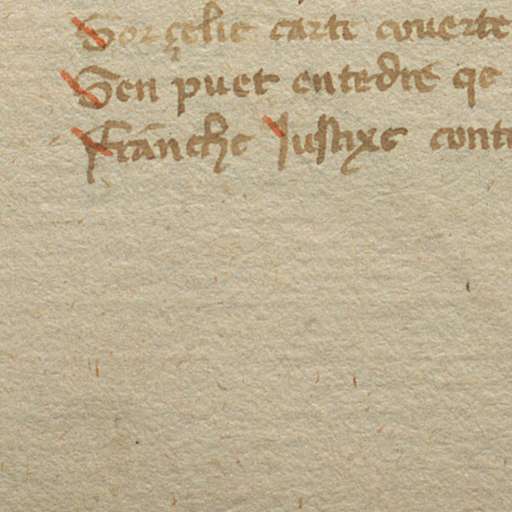 Sorçelie carte couerte
Sen puet entedre qe
Franche Iustixe cont